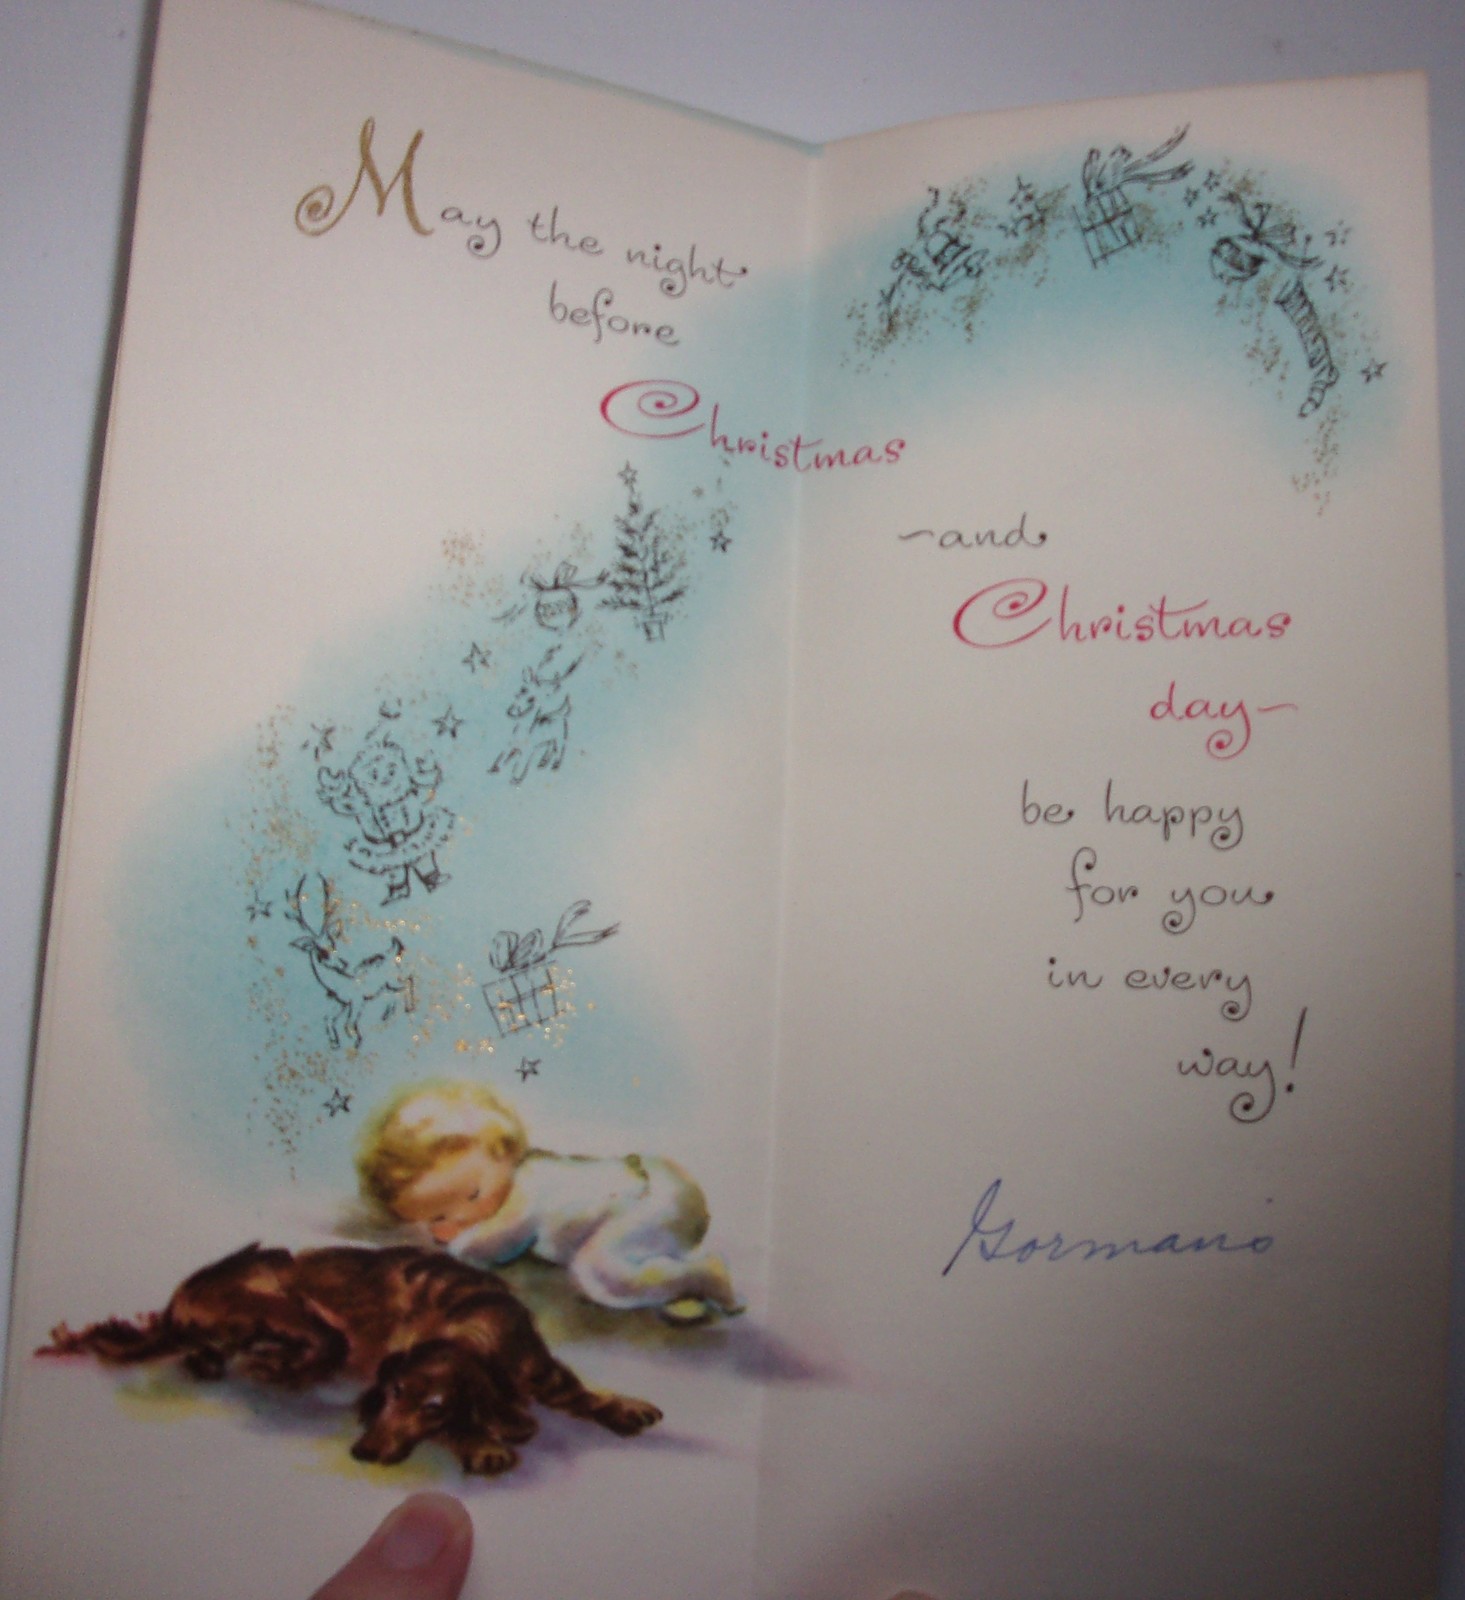 May the night
before
Christmas
~and
Christmas
day~
be happy
for you
in every
way!
Gorman's